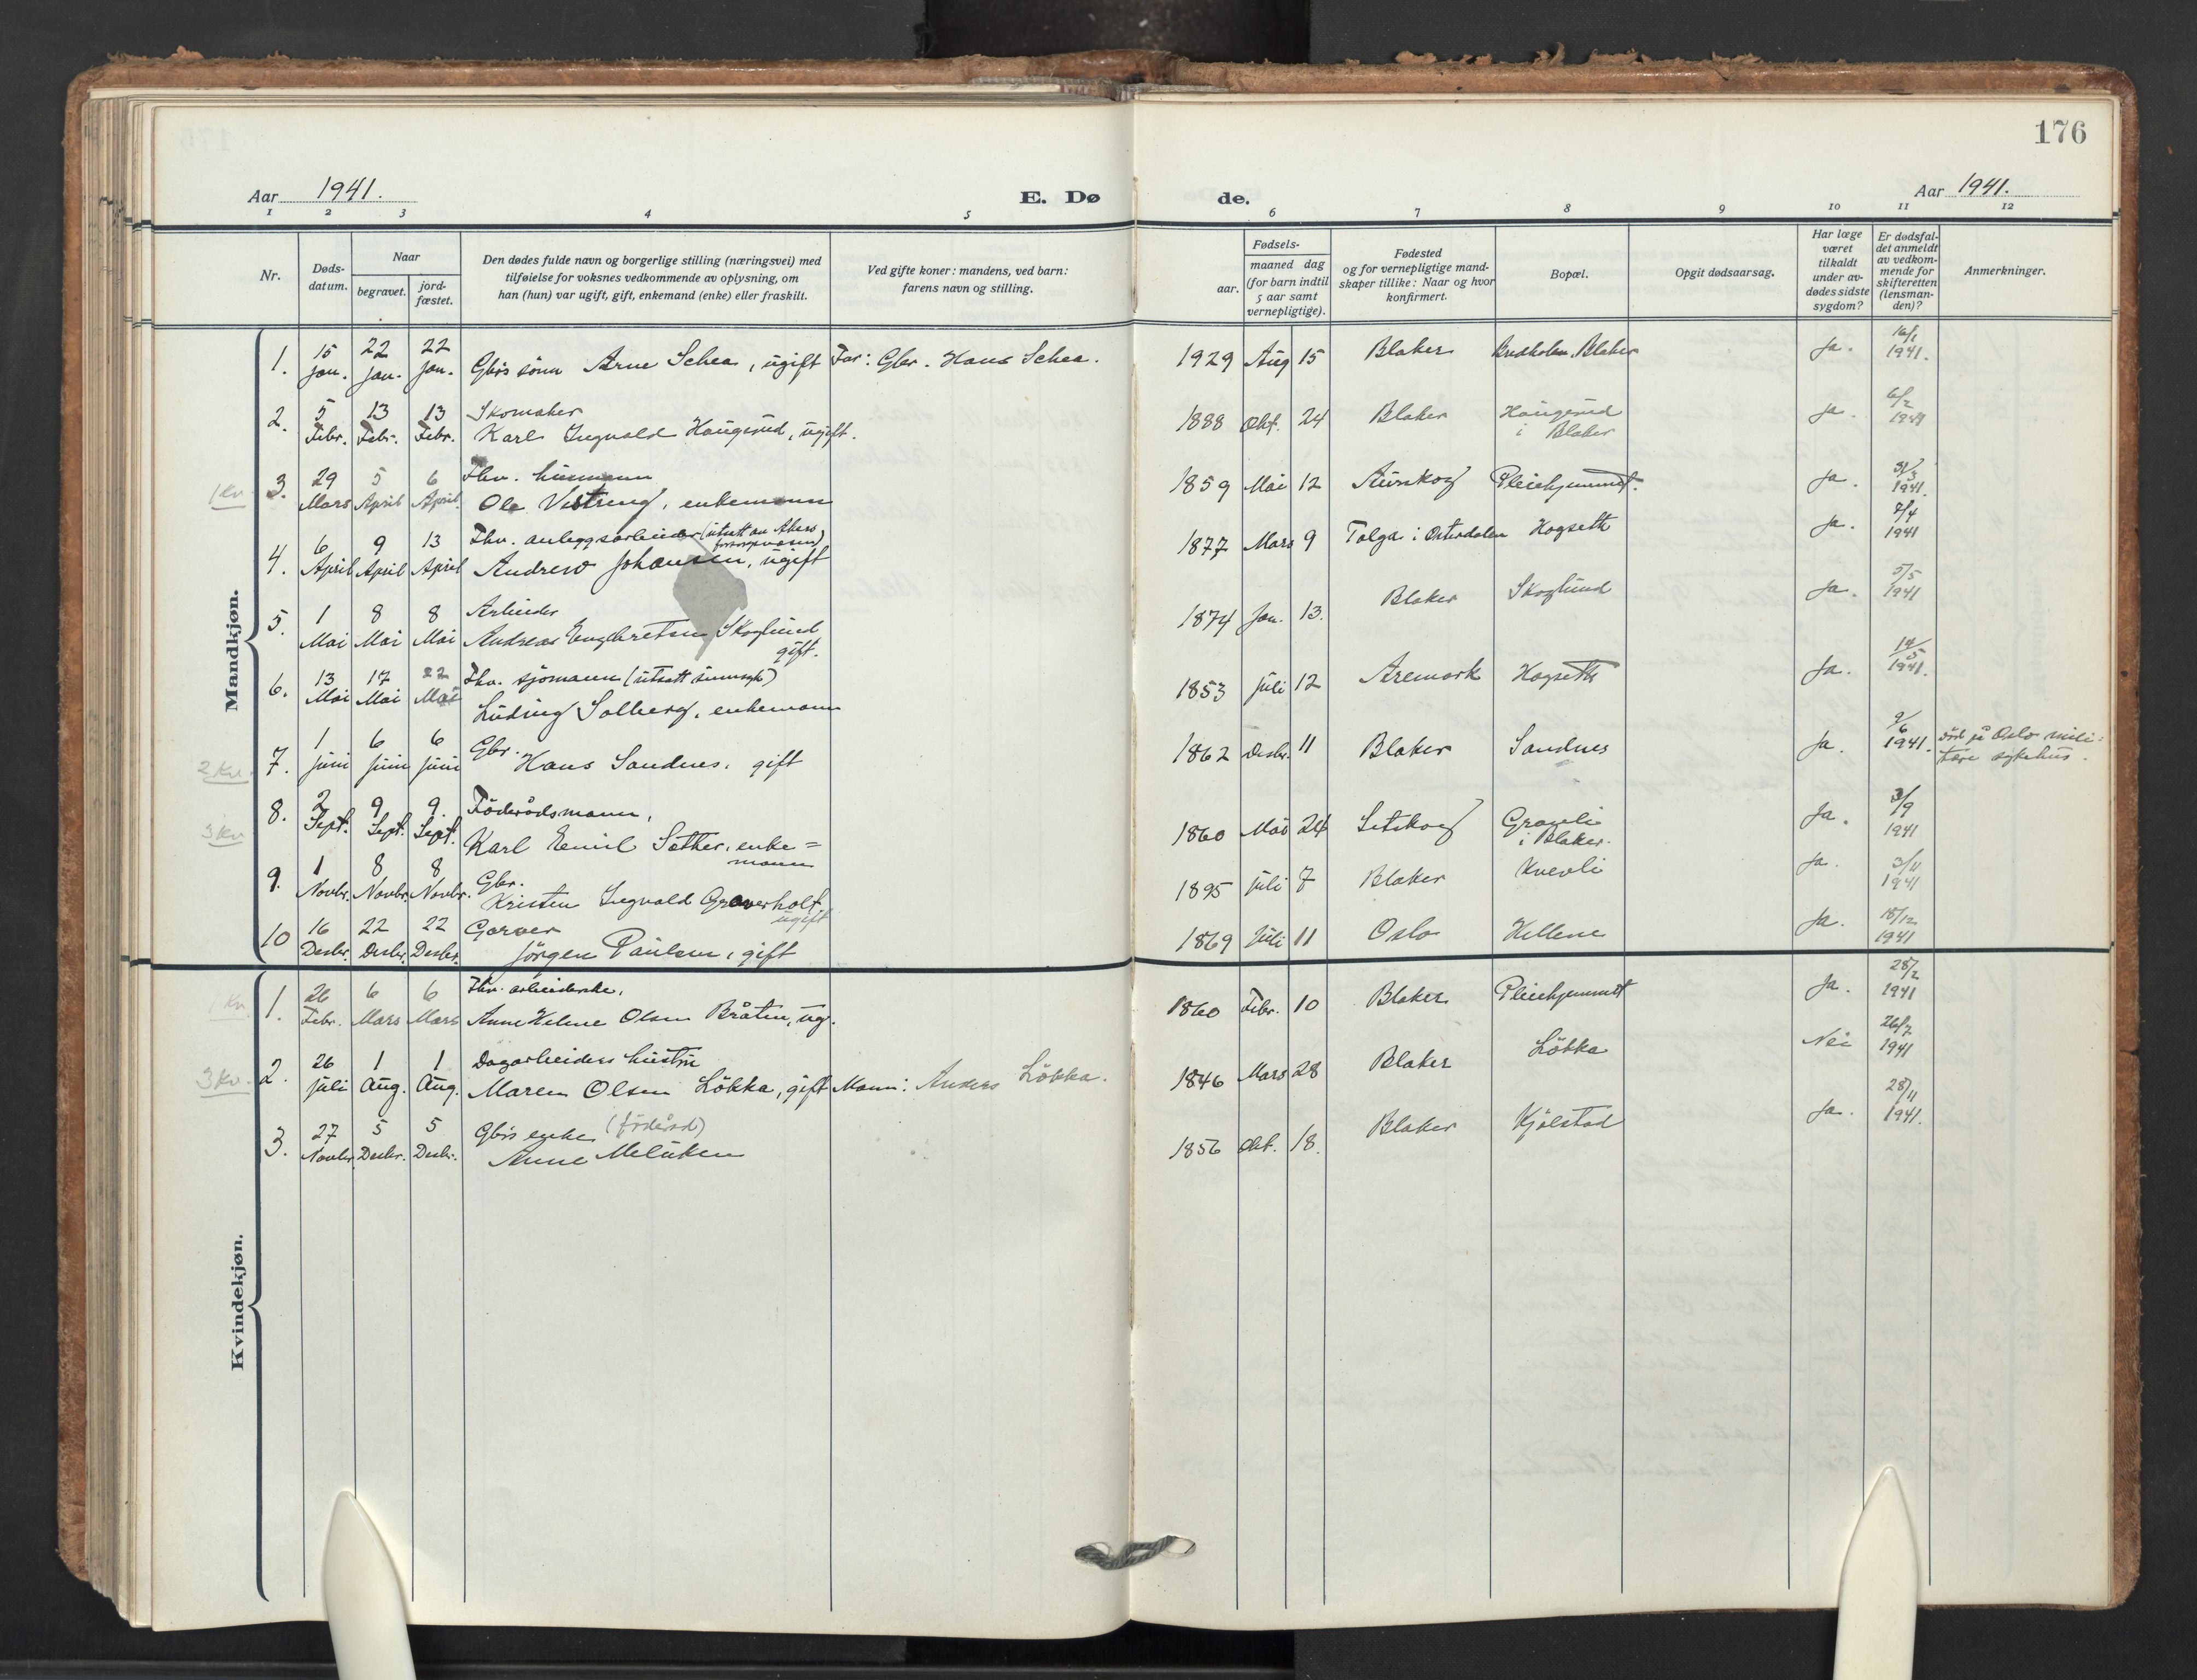 176
Aar 1941. E. Dø de. Aar 1941.
1 2 3 4 5 6 7 8 9 10 11 12
Nr.
Døds-
datum.
Naar
begravet.
jord-
fæstet.
Den dødes fulde navn og borgerlige stilling (næringsvei) med
tilføielse for voksnes vedkommende av oplysning, om
han (hun) var ugift, gift, enkemand (enke) eller fraskilt.
Ved gifte koner: mandens, ved barn:
farens navn og stilling.
Fødsels-
aar.
maaned dag
(for barn indtil
5 aar samt
vernepligtige).
Fødested
og for vernepligtige mand-
skaper tillike: Naar og hvor
konfirmert.
Bopæl.
Opgit dødsaarsag.
Har læge
været
tilkaldt
under av-
dødes sidste
sygdom?
Er dødsfal-
det anmeldt
av vedkom-
mende for
skifteretten
(lensman-
den)?
Anmerkninger.
Mandkjøn.
1. 15 22 22 16/1
jan. jan. jan. Gbr.s sönn Arne Schea, ugift Far: Gbr. Hans Schea. 1929 Aug 15 Blaker Bredholen, Blaker Ja. 1941.
2. 5 13 13 Skomaker 6/2
Febr. Febr. Febr. Karl Ingvald Haugerud, ugift. 1888 Okt. 24 Blaker Haugerud i Blaker Ja. 1941
1 kv. 3. 29 5 6 Fhv. husmann 31/3
Mars April April. Ole Vestreng, enkemann 1859 Mai 12 Aurskog Pleiehjemmet. Ja. 1941.
4. 6 9 13 Fhv. anleggsarbeider (utsatt av Akers
forsorgsvesen) 8/4
April April April Andrew Johansen, ugift 1877 Mars 9 Tolga i Österdalen Hogseth Ja. 1941
5. 1 8 8 Arbeider 5/5
Mai Mai Mai Andreas Engebretsen Skoglund
gift. 1874 Jan. 13. Blaker Skoglund Ja. 1941
6. 13 17 22 Fhv. sjömann (utsatt sinnsyk) 14/5
Mai Mai Mai Ludvig Solberg, enkemann 1853 juli 12 Aremark Hogseth Ja. 1941.
2 kv. 7. 1 6 6 Gbr. 9/6
juni juni juni Hans Sandnes, gift 1862 Desbr. 11 Blaker Sandnes Ja. 1941. död på Oslo mili-
tære sykehus.
3 kv 8. 2 9 9. Föderådsmann, 3/9
Sept. Sept. Sept. Karl Emil Sæther, enke=
mann 1860 Mai 24 Setskog i Blaker. Ja. 1941
9. 1 8 8 Gbr. 3/11
Novbr. Novbr. Novbr. Kristen Ingvald Graverholt,
ugift 1895 juli 7 Blaker Kvevli Ja. 1941
10 16 22 22 Garver 18/12
Desbr. Desbr. Desbr. Jörgen Paulsen, gift 1869 Juli 11 Oslo Hellene Ja. 1941
Kvindekjøn.
1 kv. 1. 26 6 6 Fhv. arbeiderske, 28/2
Febr. Mars Mars Anne Helene Olsen Bråten, ug. 1860 Febr. 10 Blaker Pleiehjemmet Ja. 1941
3 kv. 2. 26 1 1 Dagarbeiders hustru 26/7
juli Aug. Aug. Maren Olsen Lökka, gift Mann: Anders Lökka. 1846 Mars 28 Blaker Lökka Nei 1941
3. 27 5 5 Gbr.s enke (föderåd) 28/11
Novbr. Desbr. Desbr. Anne 1856 Okt. 18. Blaker Kjölstad Ja. 1941.